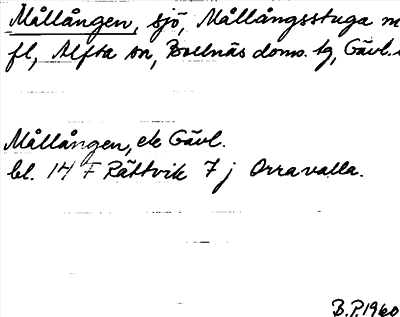 Mållången, sjö, Mållångsstuga m
fl, Alfta sn, Bollnäs doms. tg, Gävl.
Mållången, ek Gävl.
bl. 14 F Rättvik 7 j Orravalla.
B.P.1960